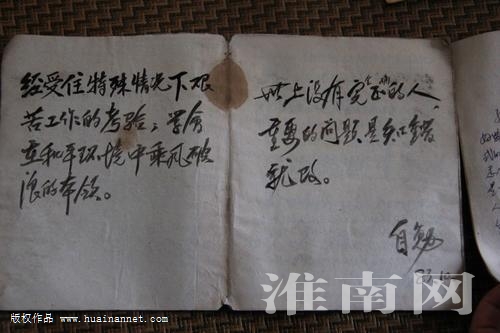 经受住特殊情况下艰
苦工作的考验；学会
在和平环境中乘风破
浪的本领。
世上没有完全正确的人，
重要的问题是知错
就改。
自勉
淮南网
版权作品 www.huainannet.com